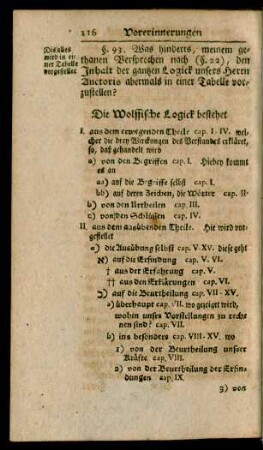 216 Vorerinnerungen
Dis alles wird in einer Tabelle vorgestellet
§. 93. Was hinderts, meinem gethanen Versprechen nach (§. 22), den Inhalt der gantzen Logick unsers Herrn Auctoris abermals in einer Tabelle vorzustellen?
Die Wolfische Logick bestehet
I. aus dem erwegenden Theile cap. I-IV. welcher die drey Wirckungen des Verstandes erkläret,
so, daß gehandelt wird
a) von den Begriffen cap. I. Hiebey kommt
es an
aa) auf die Begriffe selbst cap. I.
bb) auf deren Zeichen, die Wörter cap. II.
b) von den Urtheilen cap. III.
c) von den Schlüssen cap. IV.
II. aus dem ausübenden Theile. Hie wird vorgestellet
a) die Ausübung selbst cap. V-XV. diese geht
א) auf die Erfindung cap. V. VI.
† aus der Erfahrung cap. V.
†† aus den Erklärungen cap. VI.
ב) auf die Beurtheilung cap. VII-XV. und
a) überhaupt cap. VII. wo gezeiget wird,
wohin unsre Vorstellungen zu rechnen sind? cap. VII.
b) ins besonders cap. VIII-XV. wo
1) von der Beurtheilung unsrer
Kräfte cap. VIII.
2) von der Beurtheilung der Erfindungen cap. IX.
3) von